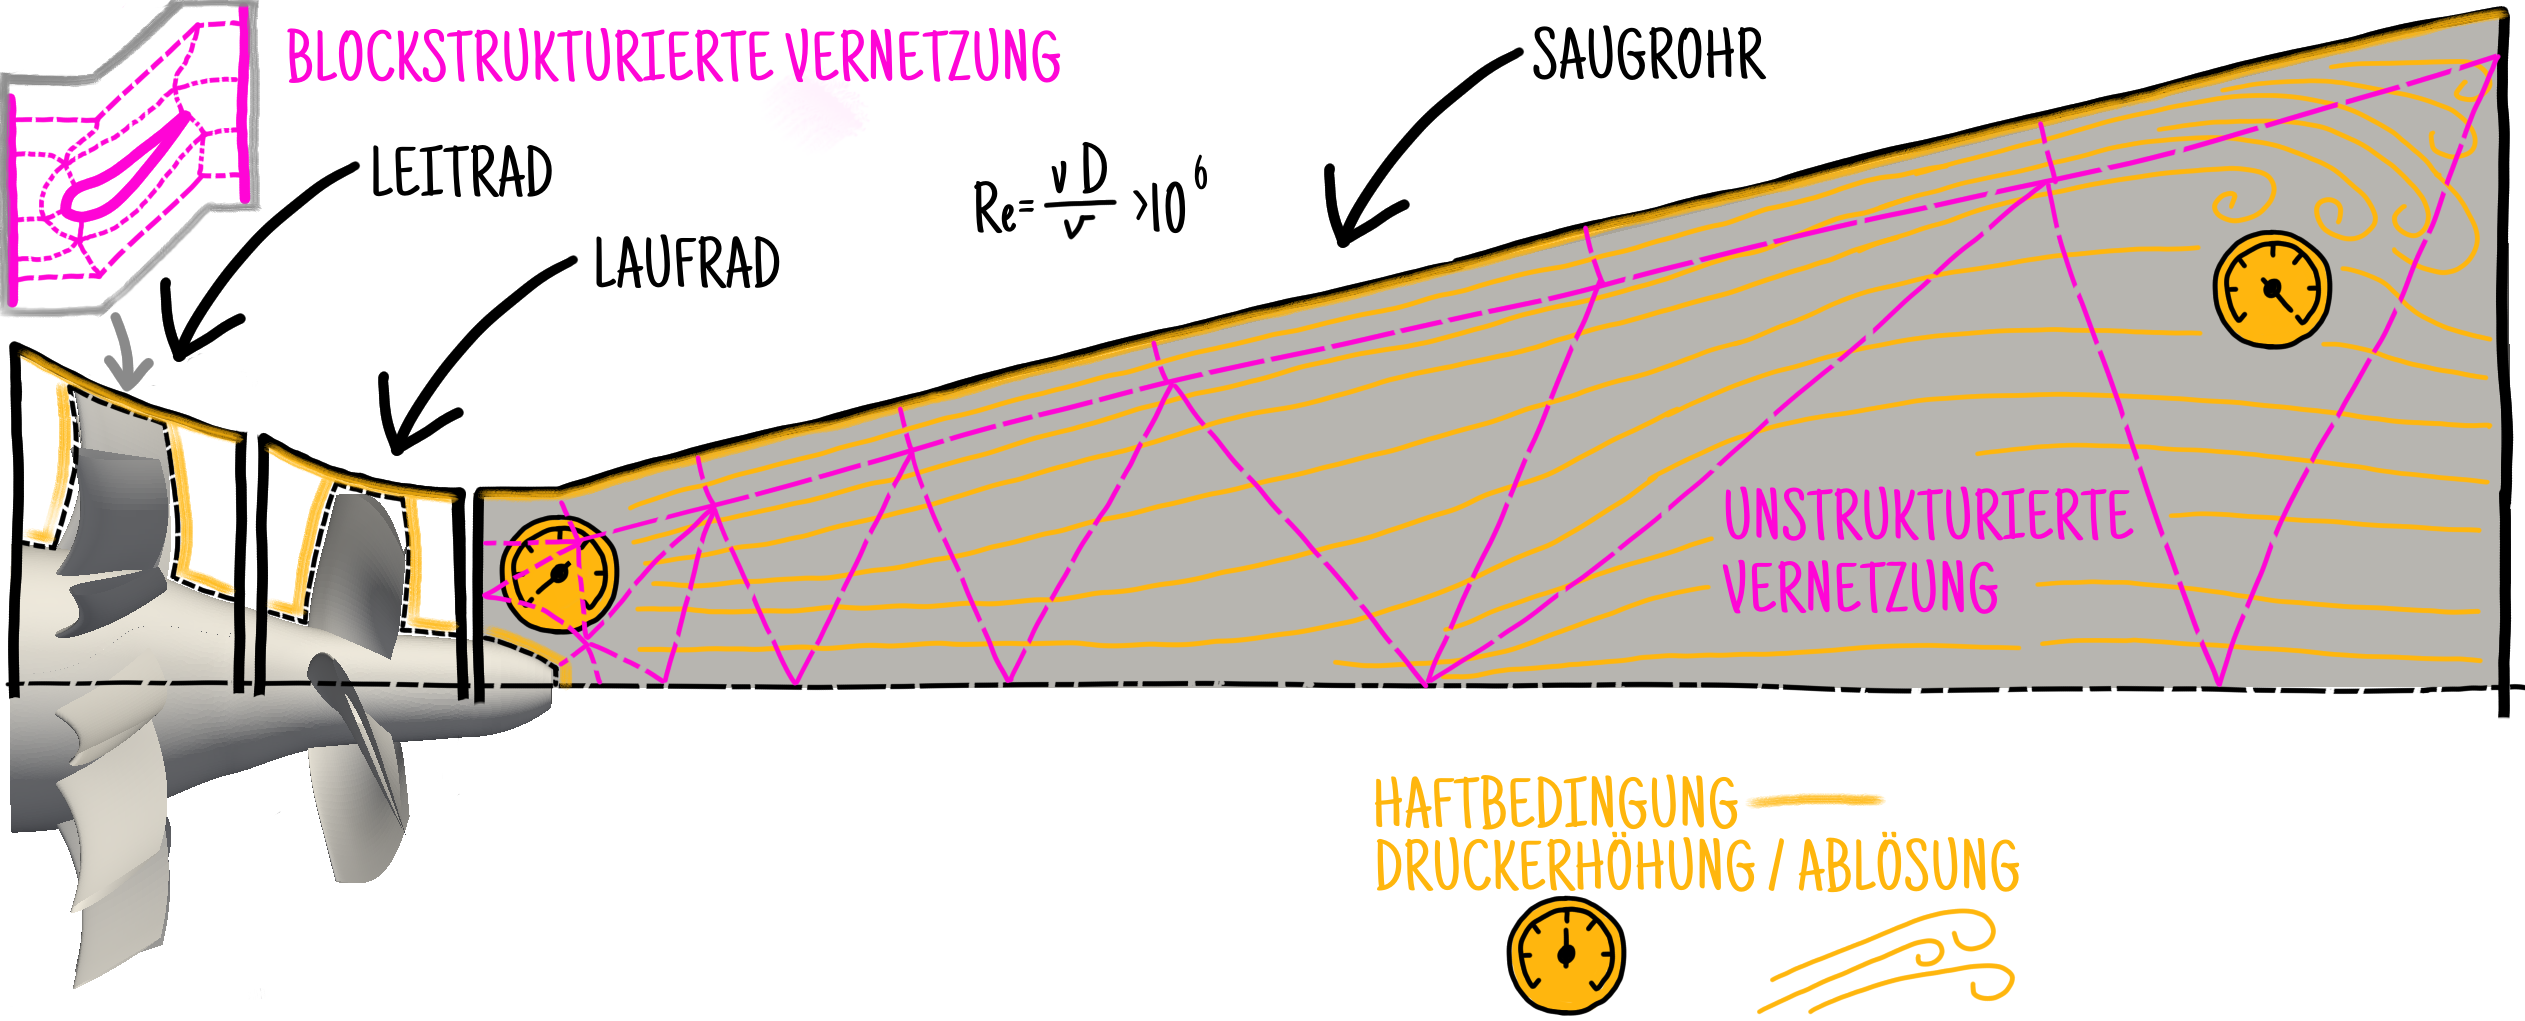 BLOCKSTRUKTURIERTE VERNETZUNG
SAUGROHR
LEITRAD
Re = v D / ν >10⁶
LAUFRAD
UNSTRUKTURIERTE
VERNETZUNG
HAFTBEDINGUNG
DRUCKERHÖHUNG / ABLÖSUNG